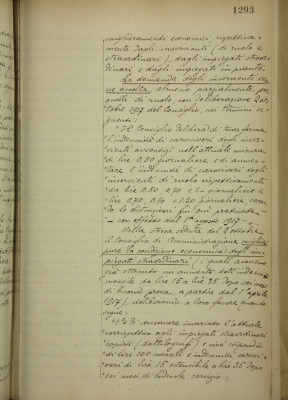 1293
miglioramenti economici rispettiva-
mente dagli inservienti (di ruolo e
straordinari), dagli impiegati straor-
dinari e dagli impiegati in pianta.
La domanda degli inservienti ven-
ne accolta, almeno parzialmente, per
quelli di ruolo, con deliberazione 2 ot-
tobre 1917 del Consiglio, nei termini se-
guenti:
"Il Consiglio delibera di
l'indennità di caroviveri degli inser-
vienti avventizi nell'attuale misura
di lire 0,50 giornaliere e di aumen-
tare l'indennità di caroviveri degli
inservienti di ruolo rispettivamente
da lire 0,50, 0,70 e 1.- giornaliere a
lire 0,70, 0,90 e 1.20 giornaliere, secon-
do le distinzioni fin qui praticate -
- con effetto dal 1° agosto 1917 -
Nella stessa seduta del 2 ottobre
il Consiglio di Amministrazione,
pure la condizione economica degli im-
piegati straordinari (i quali avevano
già ottenuto un aumento dell'indennità
mensile da lire 15 a lire 25 dopo sei mesi
di buona prova, a partire dal 1° aprile
1917), deliberava a loro favore quanto
segue:
"1° di conservare invariato l'attuale
corrispettivo agli impiegati straordinari
copisti (dattilografi) e cioè stipendio
di lire 100 mensili e indennità carovi-
veri di lire 15 estensibile a lire 25 dopo
sei mesi di lodevole servizio;